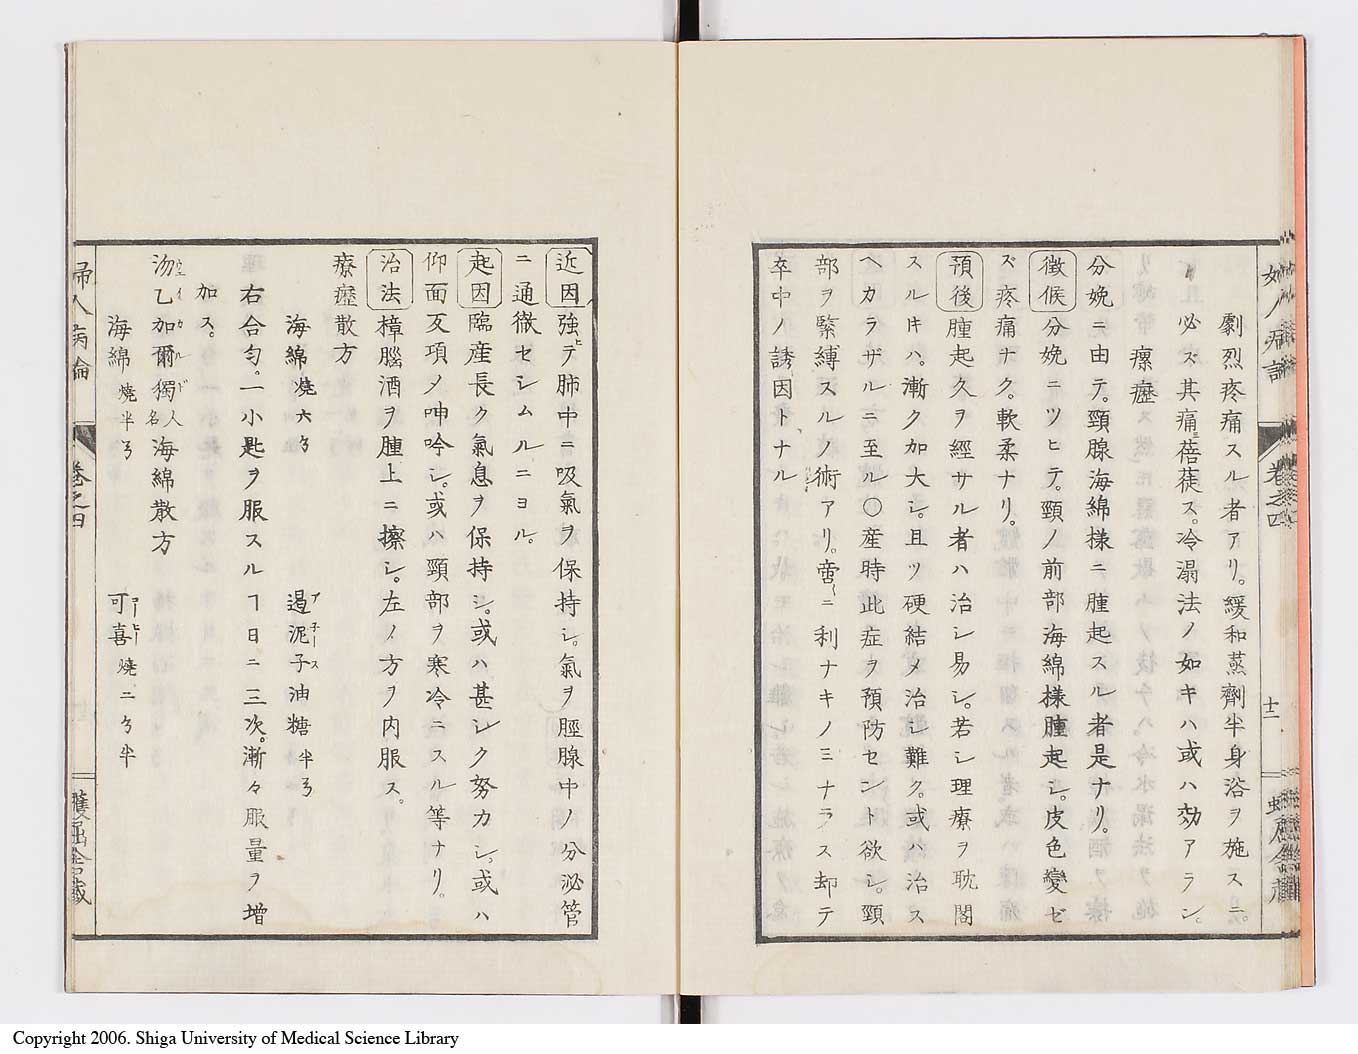 劇烈疼痛スル者アリ。緩和蒸劑半身浴ヲ施スニ。
必ズ其痛蓓蓰ス。冷溻法ノ如キハ或ハ効アラン。
瘰癧
分娩ニ由テ。頸腺海綿樣ニ腫起スル者是ナリ。
徴候 分娩ニツヒテ。頸ノ前部海綿樣腫起シ。皮色變ゼ
ズ疼痛ナク。軟柔ナリ。
預後 腫起久ヲ經サル者ハ治シ易シ。若シ理療ヲ耽閣
スル𪜈ハ。漸ク加大シ。且ツ硬結メ治シ難ク。或ハ治ス
ヘカラザルニ至ル〇産時此症ヲ預防セント欲シ。頸
部ヲ緊縛スルノ術アリ。啻ニ利ナキノミナラス却テ
卒中ノ誘因トナル
婦人病論 卷之四 十二
近因 強テ肺中ニ吸氣ヲ保持シ。氣ヲ脛腺中ノ分泌管
ニ通徹セシムルニヨル。
起因 臨産長ク氣息ヲ保持シ。或ハ甚シク努力シ。或ハ
仰面反項ノ呻吟シ。或ハ頸部ヲ寒冷ニスル等ナリ。
治法 樟腦酒ヲ腫上ニ擦シ。左ノ方ヲ内服ス。
療癧散方
海綿 燒六匁 遏泥子油糖 半匁
アニース
右合匀。一小匙ヲ服スルヿ日ニ三次。漸々服量ヲ増
加ス。
沕乙加爾獨人名海綿散方
ウェイカルド
海綿 燒半匁 可喜 燒二匁半
コーヒー
婦人病論 卷之四 蠖屈舍藏